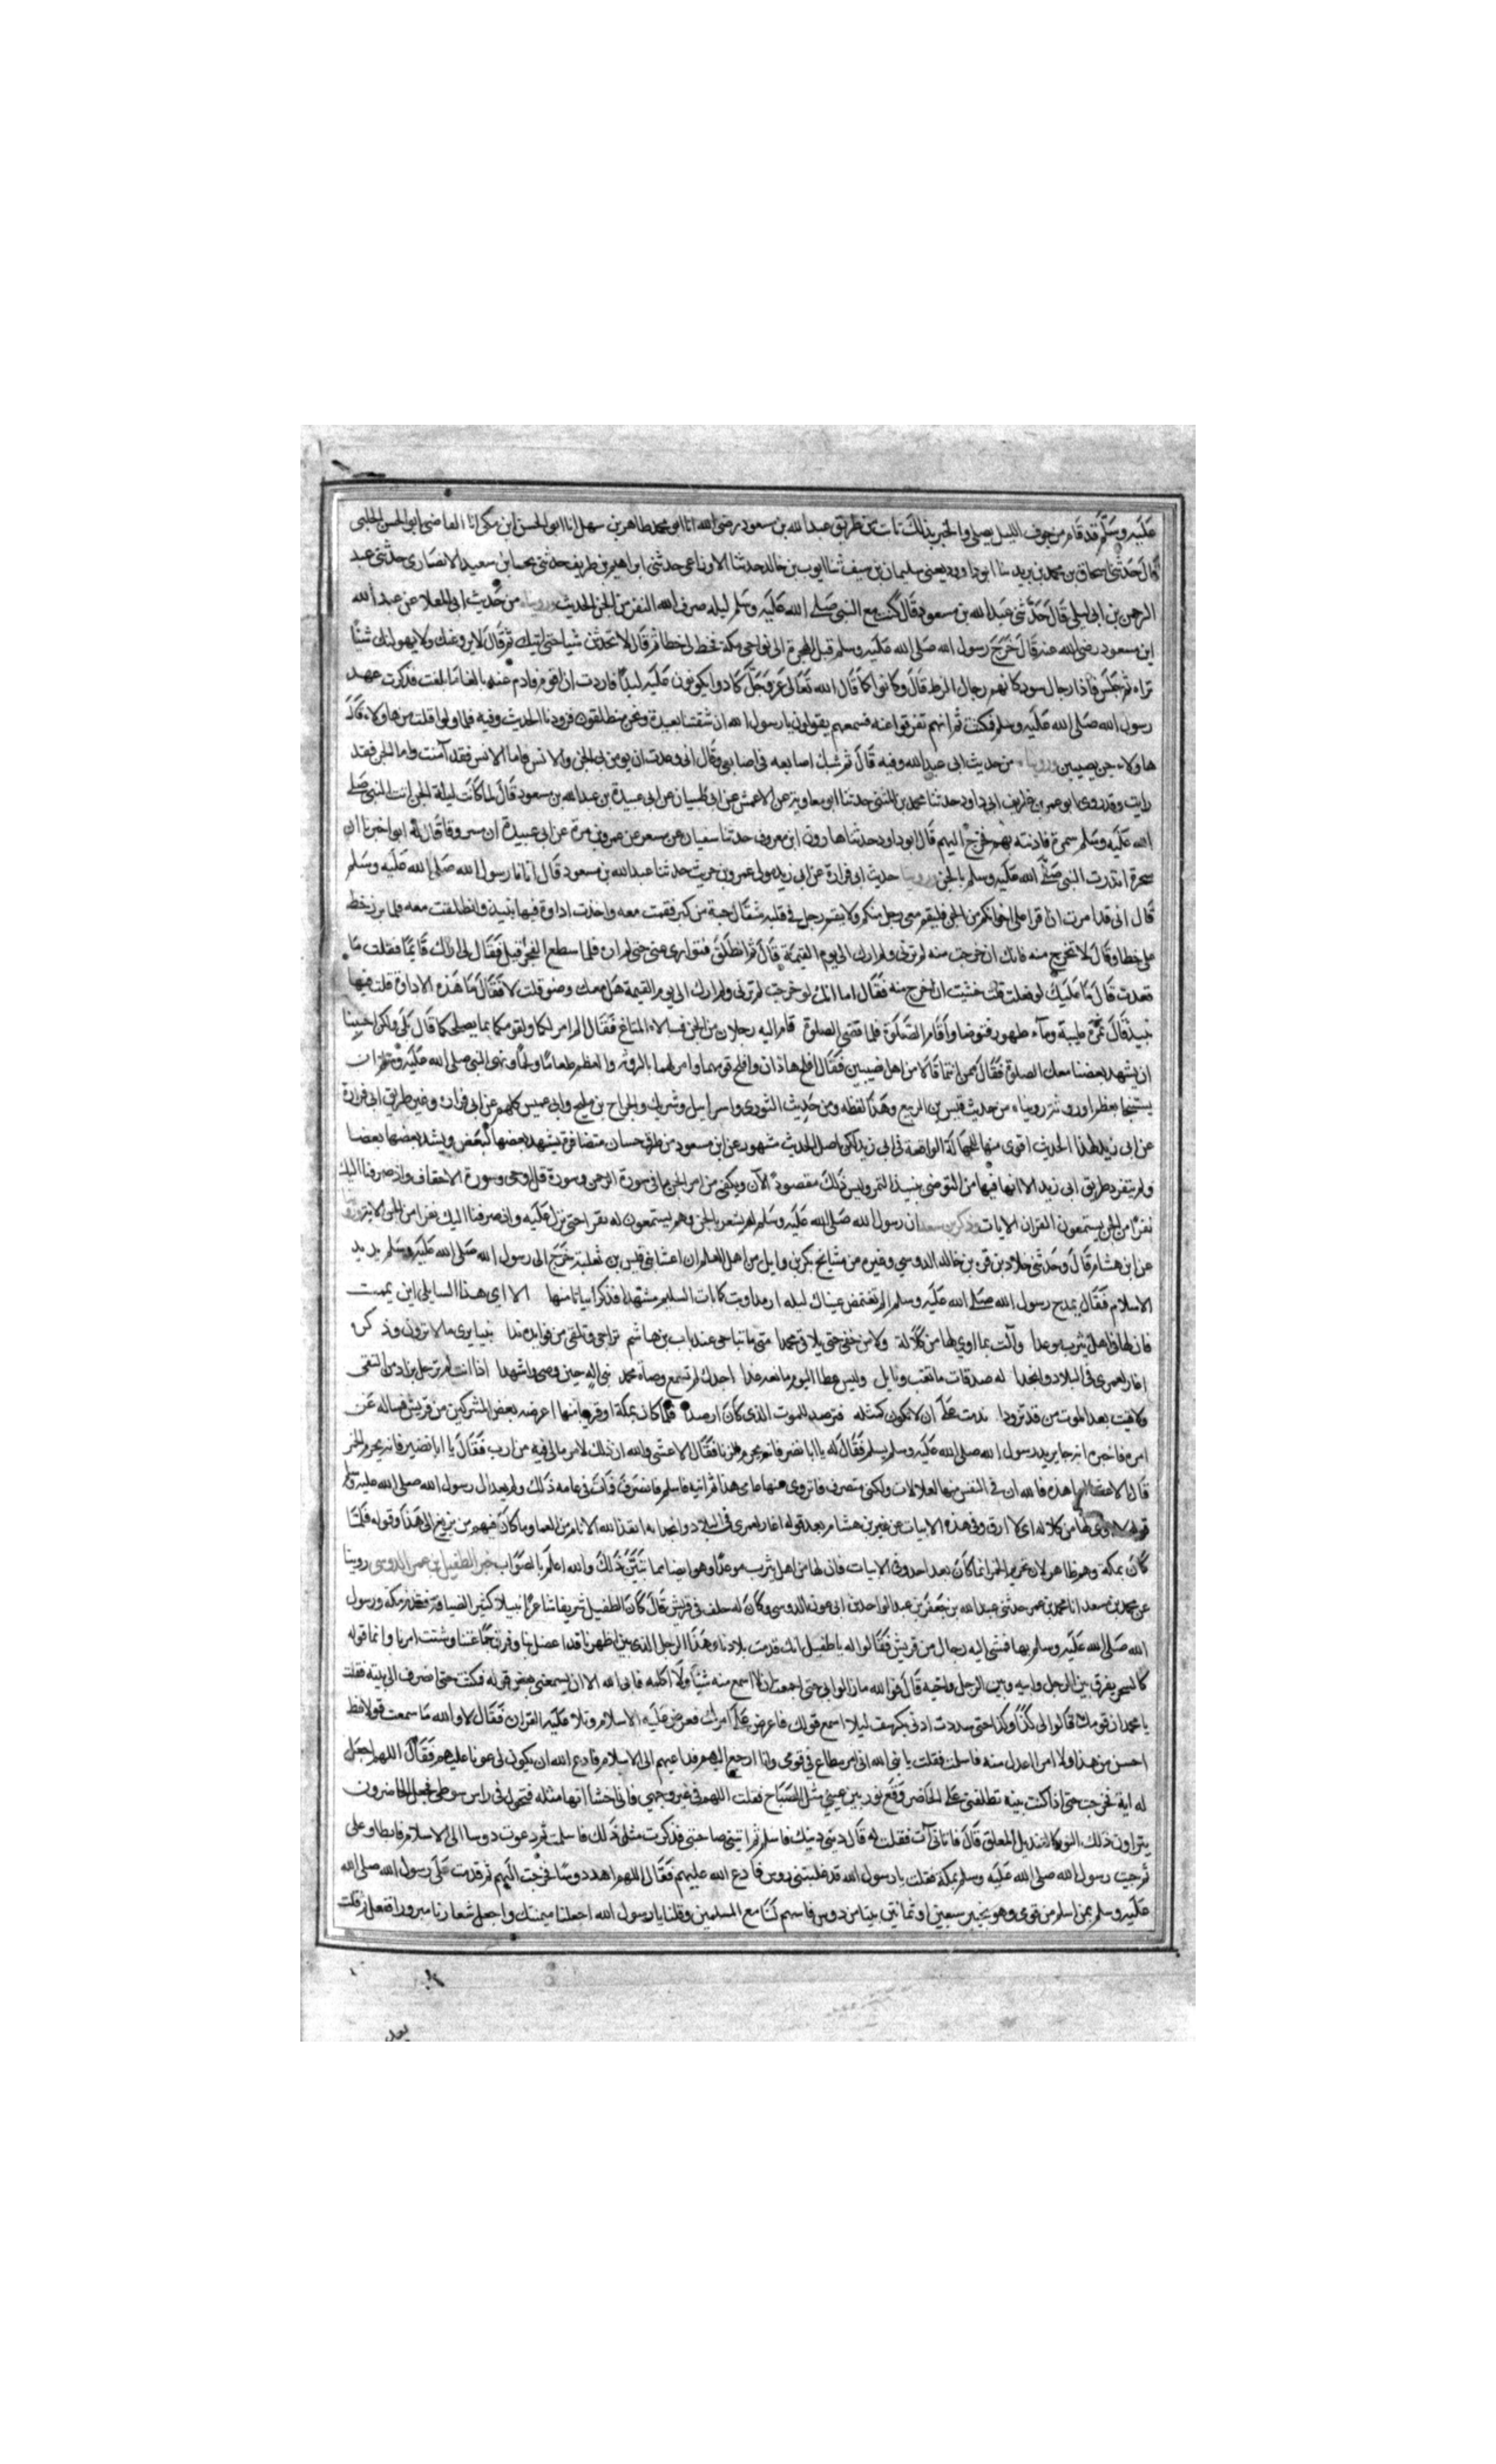 عليه وسلم قد قام من جوف الليل يصلي والخبر بذلك ثابت من طريق عبد الله بن مسعود رضي الله انا ابو محمد طاهر بن سهل انا ابو الحسن ابن مكي انا القاضي ابو الحسن الحلبي
قال حدثنا اسحاق بن محمد بن يزيد نا ابو داود يعني سليمان بن سيف ثنا ايوب بن خالد حدثنا الاوزاعي حدثني ابراهيم بن طريف حدثني يحيا بن سعيد الانصاري حدثني عبد
الرحمن بن ابي ليلي قال حدثني عبد الله بن مسعود قال كنت مع النبي صلى الله عليه وسلم ليلة صرف الله النفر من الجن الحديث وروينا من حديث ابي المعلا عن عبد الله
ابن مسعود رضي الله عنه قال خرج رسول الله صلى الله عليه وسلم قبل الهجرة الى نواحي مكة فخط لي خطا ثم قال لا تحدثن شيا حتى اتيك ثم قال لا يروعنك ولا يهولنك شيئا
تراه ثم جلس فاذا رجال سود كانهم رجال الزط قال وكانوا كما قال الله تعالى عز وجل كادوا يكونون عليه لبدا فاردت ان اقوم فاذب عنه بالغا ما بلغت فذكرت عهد
رسول الله صلى الله عليه وسلم فمكثت ثم انهم تفرقوا عنه فسمعتهم يقولون يا رسول الله ان شقتنا بعيدة ونحن منطلقون فزودنا الحديث وفيه فلما ولوا قلت من هاولاء قال
هاولاء جن نصيبين وروينا من حديث ابي عبد الله وفيه قال ثم شبك اصابعه في اصابعي وقال اني وعدت ان يومن بي الجن والانس فاما الانس فقد آمنت واما الجن فقد
رايت وقد روى ابو عمر من طريف ابي داود حدثنا محمد بن المثنى حدثنا ابو معاوية عن الاعمش عن ابي ظبيان عن ابي عبيدة بن عبد الله بن مسعود قال لما كانت ليلة الجن اتت النبي صلى
الله عليه وسلم سمرة فاذنته بهم فخرج اليهم قال ابو داود حدثنا هارون ابن معروف حدثنا سفيان عن مسعر عن عمرو بن مرة عن ابي عبيدة ان مسروقا قال له ابوك اخبرنا ان
شجرة انذرت النبي صلى الله عليه وسلم بالجن وروينا حديث ابي فزارة عن ابي زيد مولى عمرو بن حريث حدثنا عبد الله بن مسعود قال اتانا رسول الله صلى الله عليه وسلم
قال اني قد امرت ان اقرا على اخوانكم من الجن فليقم معي رجل منكم ولا يقم رجل في قلبه مثقال حبة من كبر فقمت معه واخذت اداوة فيها نبيذ وانطلقت معه فلما برز خط
علي خطا وقال لا تخرج منه فانك ان خرجت منه لم ترني ولم ارك الى يوم القيمة قال ثم انطلق فتوارى عني حتى لم اره فلما سطع الفجر اقبل فقال لي اراك قائما فقلت ما
قعدت قال ما عليك لو فعلت قلت خشيت ان اخرج منه فقال اما انك لو خرجت لم ترني ولم ارك الى يوم القيمة هل معك وضو قلت لا فقال ما هذه الاداوة قلت فيها
نبيذ قال تمرة طيبة وماء طهور فتوضا واقام الصلوة فلما قضى الصلوة قام اليه رجلان من الجن فسالاه المتاع فقال الم امر لكما ولقومكما بما يصلحكما قال بلى ولكن احببنا
ان يشهد بعضنا معك الصلوة فقال ممن انتما قالا من اهل نصيبين فقال افلح هاذان وافلح قومهما وامر لهما بالروث والعظم طعاما ولحما ونهى النبي صلى الله عليه وسلم ان
يستنجا بعظم او روث رويناه من حديث قيس بن الربيع وهذا لفظه ومن حديث الثوري واسرائيل وشريك والجراح بن مليح وابي عميس كلهم عن ابي فزارة وغير طريق ابي فزارة
عن ابي زيد لهذا الحديث اقوى منها للجهالة الواقعة في ابي زيد لكن اصل الحديث مشهور عن ابن مسعود من طرق حسان متضافرة يشهد بعضها لبعض ويشد بعضها بعضا
ولم يتفرد طريق ابي زيد الا انها فيها من التوضي بنبيذ التمر وليس ذلك مقصود الآن ويكفي من امر الجن ما في سورة الرحمن وسورة قل اوحي وسورة الاحقاف واذ صرفنا اليك
نفرا من الجن يستمعون القران الايات وذكر بن سعد ان رسول الله صلى الله عليه وسلم لم يشعر بالجن وهم يستمعون له يقرا حتى نزل عليه واذ صرفنا اليك نفرا من الجن الاية وروينا
عن ابن هشام قال وحدثني خلاد بن قرة بن خالد الدوسي وغيره من مشايخ بكر بن وايل من اهل العلم ان اعشى بني قيس بن ثعلبة خرج الى رسول الله صلى الله عليه وسلم يريد
الاسلام فقال يمدح رسول الله صلى الله عليه وسلم الم تغتمض عيناك ليلة ارمدا وبت كما بات السليم مشهدا فذكر ابياتا منها الا ايهذا السايلي اين يممت
فان لها في اهل يثرب موعدا وآلت بما اوي لها من كلالة ولا من حفى حتى يلاقي محمدا متى ما تناخى عند باب بن هاشم تراحى وتلقى من فواضله ندا نبيا يرى ما لا ترون وذكره
اغار لعمري في البلاد وانجدا له صدقات ما تغب ونايل وليس عطا اليوم مانعه غدا اجدك لم تسمع وصاة محمد نبي اله حين وصى واشهدا اذا انت لم ترحل بزاد من التقى
ولاقيت بعد الموت من قد تزودا ندمت على ان لا تكون كمثله فترصد للموت الذي كان ارصدا فلما كان بمكة او قريبا منها اعرضه بعض المشركين من قريش فساله عن
امره فاخبره انه جا يريد رسول الله صلى الله عليه وسلم يسلم فقال له يا ابا نضير فانه يحرم الزنا فقال الاعشى والله ان ذلك لامر ما لي فيه من ارب فقال يا ابا نضير فانه يحرم الخمر
قال الاعشى اما هذه فالله ان في النفس منها لعلالات ولكني منصرف فاتروى منها عامي هذا ثم اتيه فاسلم فانصرف فمات في عامه ذلك ولم يعد الى رسول الله صلى الله عليه وسلم
قوله لها من كلاله اي لا ارق وفي هذه الابيات عن غير بن هشام بعد قوله اغار لعمري في البلاد وانجدا به انقذ الله الانام من العما وما كان فيهم من يريع الى هذا وقوله فلما
كان بمكة وهم ظاهر لان تحريم الخمر انما كان بعد احد وفي الابيات فان لها من اهل يثرب موعدا وهو ايضا مما يبين ذلك والله اعلم بالصواب خبر الطفيل بن عمر الدوسي روينا
عن محمد بن سعد انا محمد بن عمر حدثني عبد الله بن جعفر بن عبد الواحد بن ابي عون الدوسي وكان له حلف في قريش قال كان الطفيل شريفا شاعرا نبيلا كثير الضيافة فقدم مكة ورسول
الله صلى الله عليه وسلم بها فمشى اليه رجال من قريش فقالوا له يا طفيل انك قدمت بلادنا وهذا الرجل الذي بين اظهرنا قد اعضل بنا وفرق جماعتنا وشتت امرنا وانما قوله
كالسحر يفرق بين الرجل وابيه وبين الرجل واخيه قال فوالله ما زالوا بي حتى اجمعت ان لا اسمع منه شيئا ولا اكلمه فابى الله الا ان يسمعني بعض قوله فمكثت حتى انصرف الى بيته فقلت
يا محمد ان قومك قالوا لي كذا وكذا حتى سددت اذني بكرسف ليلا اسمع قولك فاعرض علي امرك فعرض عليه الاسلام وتلا عليه القران فقال لا والله ما سمعت قولا قط
احسن من هذا ولا امرا اعدل منه فاسلمت فقلت يا نبي الله اني امر مطاع في قومي وانا ارجع اليهم فداعيهم الى الاسلام فادع الله ان يكون لي عونا عليهم فقال اللهم اجعل
له اية فخرجت حتى اذا كنت بثنية تطلعني على الحاضر وقع نور بين عيني مثل المصباح فقلت اللهم في غير وجهي فاني اخشا انها مثله فتحول في راس سوطي فجعل الحاضرون
يتراون ذلك النور كالقنديل المعلق قال فاتاني آت فقلت له قال ديني دينك فاسلم ثم اتتني صاحبتي فذكرت مثل ذلك فاسلمت ثم دعوت دوسا الى الاسلام فابطاو علي
ثم جيت رسول الله صلى الله عليه وسلم بمكة فقلت يا رسول الله قد غلبتني دوس فادع الله عليهم فقال اللهم اهد دوسا فخرجت اليهم ثم قدمت على رسول الله صلى الله
عليه وسلم بمن اسلم من قومي وهو بخيبر سبعين او ثمانين بيتا من دوس فاسهم لنا مع المسلمين وقلنا يا رسول الله اجعلنا ميمنتك واجعل شعارنا مبرور ففعل ثم قلت